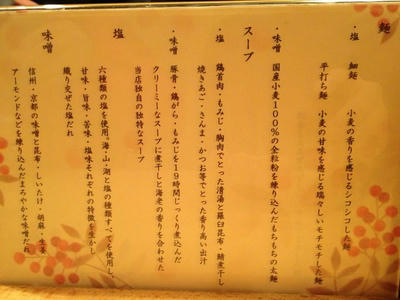 麺
・塩　細麺　小麦の香りを感じるシコシコした麺
平打ち麺　小麦の甘味を感じる瑞々しいモチモチした麺
・味噌　国産小麦100％の全粒粉を練り込んだもちもちの太麺
スープ
・塩　鶏首肉・もみじ・胸肉でとった清湯と羅臼昆布・鯖煮干し
焼きあご・さんま・かつお等でとった香り高い出汁
・味噌　豚骨・鶏がら・もみじを19時間じっくり煮込んだ
クリーミーなスープに煮干しと海老の香りを合わせた
当店独自の独特なスープ
塩　六種類の塩を使用。海・山・湖と塩の種類すべてを使用し、
甘味・旨味・苦味・塩味それぞれの特徴を生かし
織り交ぜた塩だれ
味噌　信州・京都の味噌と昆布・しいたけ・胡麻・生姜
アーモンドなどを練り込んだまろやかな味噌だれ